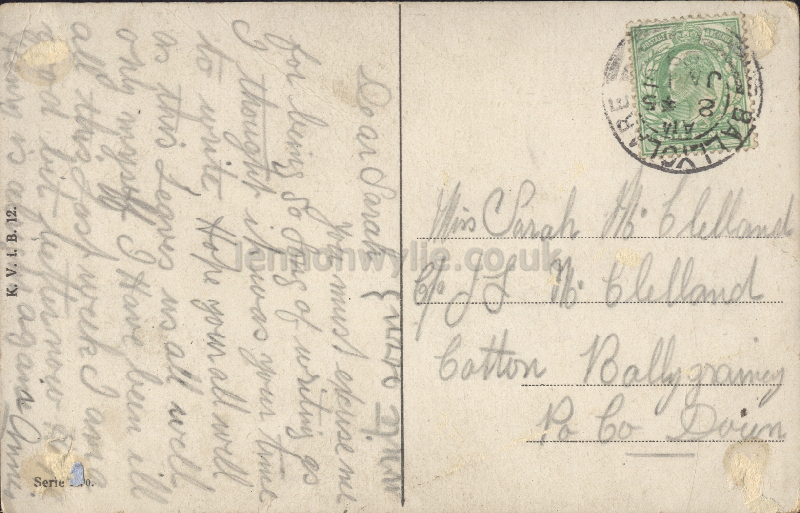 Dear Sarah
you must excuse me
for being so long of writing as
I thought it was your time
to write Hope your all well
as this leaves us all well
only myself I have been ill
all this last week I am
good but better now
again
K. V. i. B. 12.
Serie
BALLYCLARE
Miss Sarah Mc Clelland
C/o J Mc Clelland
Cotton Ballygrainey
Po Co Down
lemonwylie.co.uk